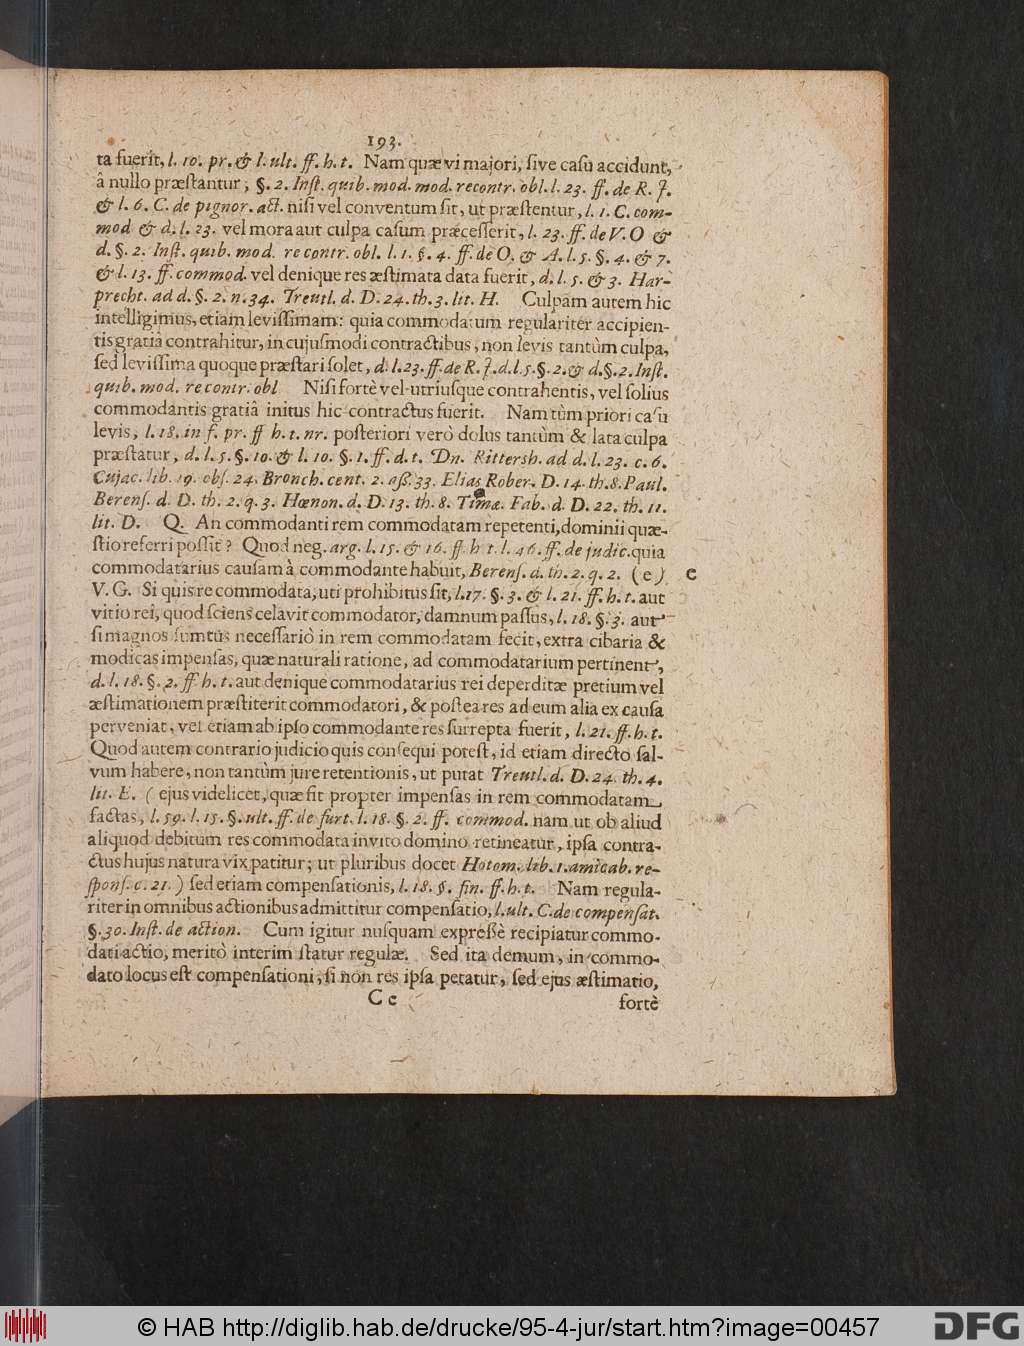 193.
ta fuerit, l. 10. pr. & l. ult. ff. h. t. Nam quæ vi majori, sive casu accidunt,
â nullo præstantur, §. 2. Inst. quib. mod. mod. recontr. obl. l. 23. ff. de R. J.
& l. 6. C. de pignor. act. nisi vel conventum sit, ut præstentur, l. 1. C. com-
mod & d. l. 23. vel mora aut culpa casum præcesserit, l. 23. ff. de V. O &
d. §. 2. Inst. quib. mod. re contr. obl. l. 1. §. 4. ff. de O. & A. l. 5. §. 4. & 7.
& l. 13. ff. commod. vel denique res æstimata data fuerit, d. l. 5. & 3. Har-
precht. ad d. §. 2. n. 34. Treutl. d. D. 24. th. 3. lit. H. Culpam autem hic
intelligimus, etiam levissimam: quia commodatum regulariter accipien-
tis gratiâ contrahitur, in cujusmodi contractibus, non levis tantùm culpa,
sed levissima quoque præstari solet, d. l. 23. ff. de R. J. d. l. 5. §. 2. & d. §. 2. Inst.
quib. mod. re contr. obl Nisi fortè vel utriusque contrahentis, vel solius
commodantis gratiâ initus hic contractus fuerit. Nam tùm priori casu
levis, l. 18. in f. pr. ff h. t. nr. posteriori verò dolus tantùm & lata culpa
præstatur, d. l. 5. §. 10. & l. 10. §. 1. ff. d. t. Dn. Rittersh. ad d. l. 23. c. 6.
Cujac. lib. 19. obs. 24. Bronch. cent. 2. ass. 33. Elias Rober. D. 14. th. 8. Paul.
Berens. d. D. th. 2. q. 3. Hœnon. d. D. 13. th. 8. Timæ. Fab. d. D. 22. th. 11.
lit. D. Q. An commodanti rem commodatam repetenti, dominii quæ-
stio referri possit? Quod neg. arg. l. 15. & 16. ff h t. l. 46. ff. de judic. quia
commodatarius causam à commodante habuit, Berens. d. th. 2. q. 2. (e) e
V. G. Si quis re commodata, uti prohibitus sit, l. 17. §. 3. & l. 21. ff. h. t. aut
vitio rei, quod sciens celavit commodator, damnum passus, l. 18. §. 3. aut
si magnos sumtus necessariò in rem commodatam fecit, extra cibaria &
modicas impensas, quæ naturali ratione, ad commodatarium pertinent,
d. l. 18. §. 2. ff h. t. aut denique commodatarius rei deperditæ pretium vel
æstimationem præstiterit commodatori, & postea res ad eum alia ex causa
perveniat, vel etiam ab ipso commodante res surrepta fuerit, l. 21. ff. h. t.
Quod autem contrario judicio quis consequi potest, id etiam directo sal-
vum habere, non tantùm jure retentionis, ut putat Treutl. d. D. 24. th. 4.
lit. E. (ejus videlicet, quæ fit propter impensas in rem commodatam
factas, l. 59. l. 15. §. ult. ff. de furt. l. 18. §. 2. ff. commod. nam ut ob aliud
aliquod debitum res commodata invito domino retineatur, ipsa contra-
ctus hujus natura vix patitur; ut pluribus docet Hotom. lib. 1. amicab. re-
spons. c. 21.) sed etiam compensationis, l. 18. §. fin. ff. h. t. Nam regula-
riter in omnibus actionibus admittitur compensatio, l. ult. C. de compensat.
§. 30. Inst. de action. Cum igitur nusquam expressè recipiatur commo-
dati actio, meritò interim statur regulæ. Sed ita demum, in commo-
dato locus est compensationi, si non res ipsa petatur, sed ejus æstimatio,
C c fortè
© HAB http://diglib.hab.de/drucke/95-4-jur/start.htm?image=00457
DFG